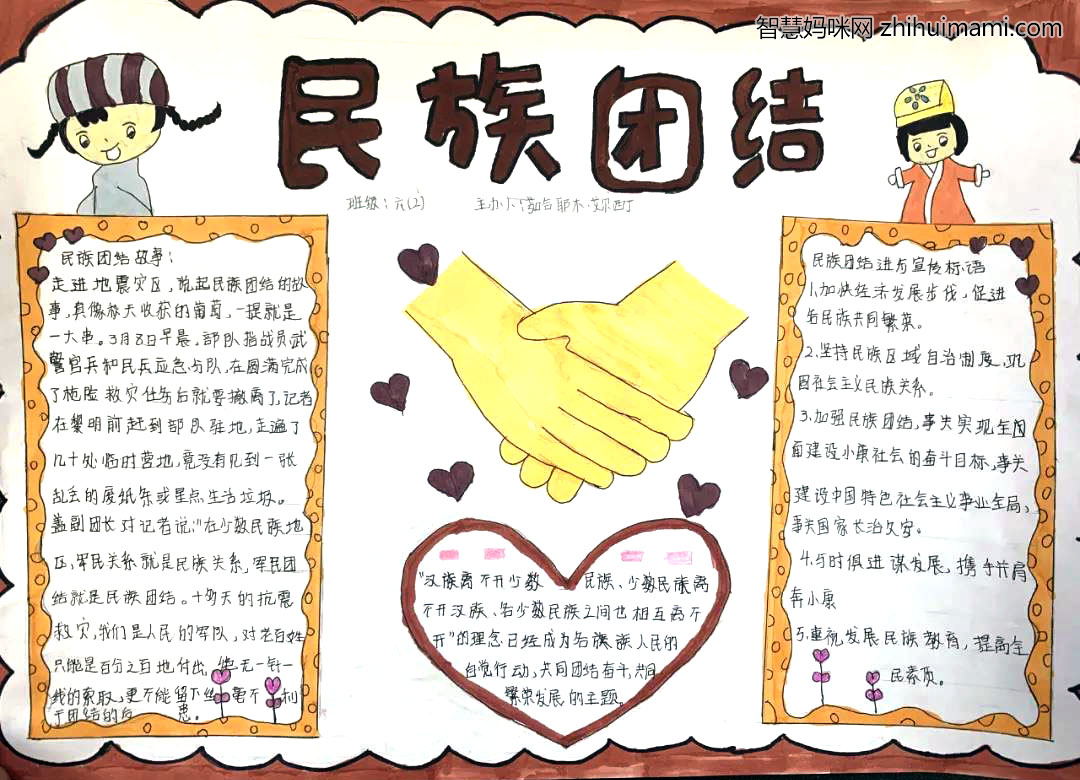 智慧妈咪网 zhihuimami.com
民族团结
班级：六(2)
主办:
民族团结故事：
走进地震灾区，说起民族团结的故
事，真像秋天收获的葡萄，一提就是
一大串。3月8日早晨，部队指战员武
警官兵和民兵应急分队，在圆满完成
了抢险救灾任务后就要撤离了，记者
在黎明前赶到部队驻地，走遍了
几十处临时营地，竟没有见到一张
乱丢的废纸条或星点生活垃圾。
盖副团长对记者说："在少数民族地
区，军民关系就是民族关系，军民团
结就是民族团结。十多天的抗震
救灾，我们是人民的军队，对老百姓
只能是百分之百地付出，绝无一针一
线的索取，更不能留下丝毫不利
于团结的后患。
"汉族离不开少数民族、少数民族离
不开汉族、各少数民族之间也相互离不
开"的理念已经成为各族人民的
自觉行动，共同团结奋斗，共同
繁荣发展的主题。
民族团结进步宣传标语
1.加快经济发展步伐，促进
各民族共同繁荣。
2.坚持民族区域自治制度，巩
固社会主义民族关系。
3.加强民族团结，事关实现全面
面建设小康社会的奋斗目标，事关
建设中国特色社会主义事业全局，
事关国家长治久安。
4.与时俱进谋发展，携手并肩
奔小康
5.重视发展民族教育，提高全
民素质。